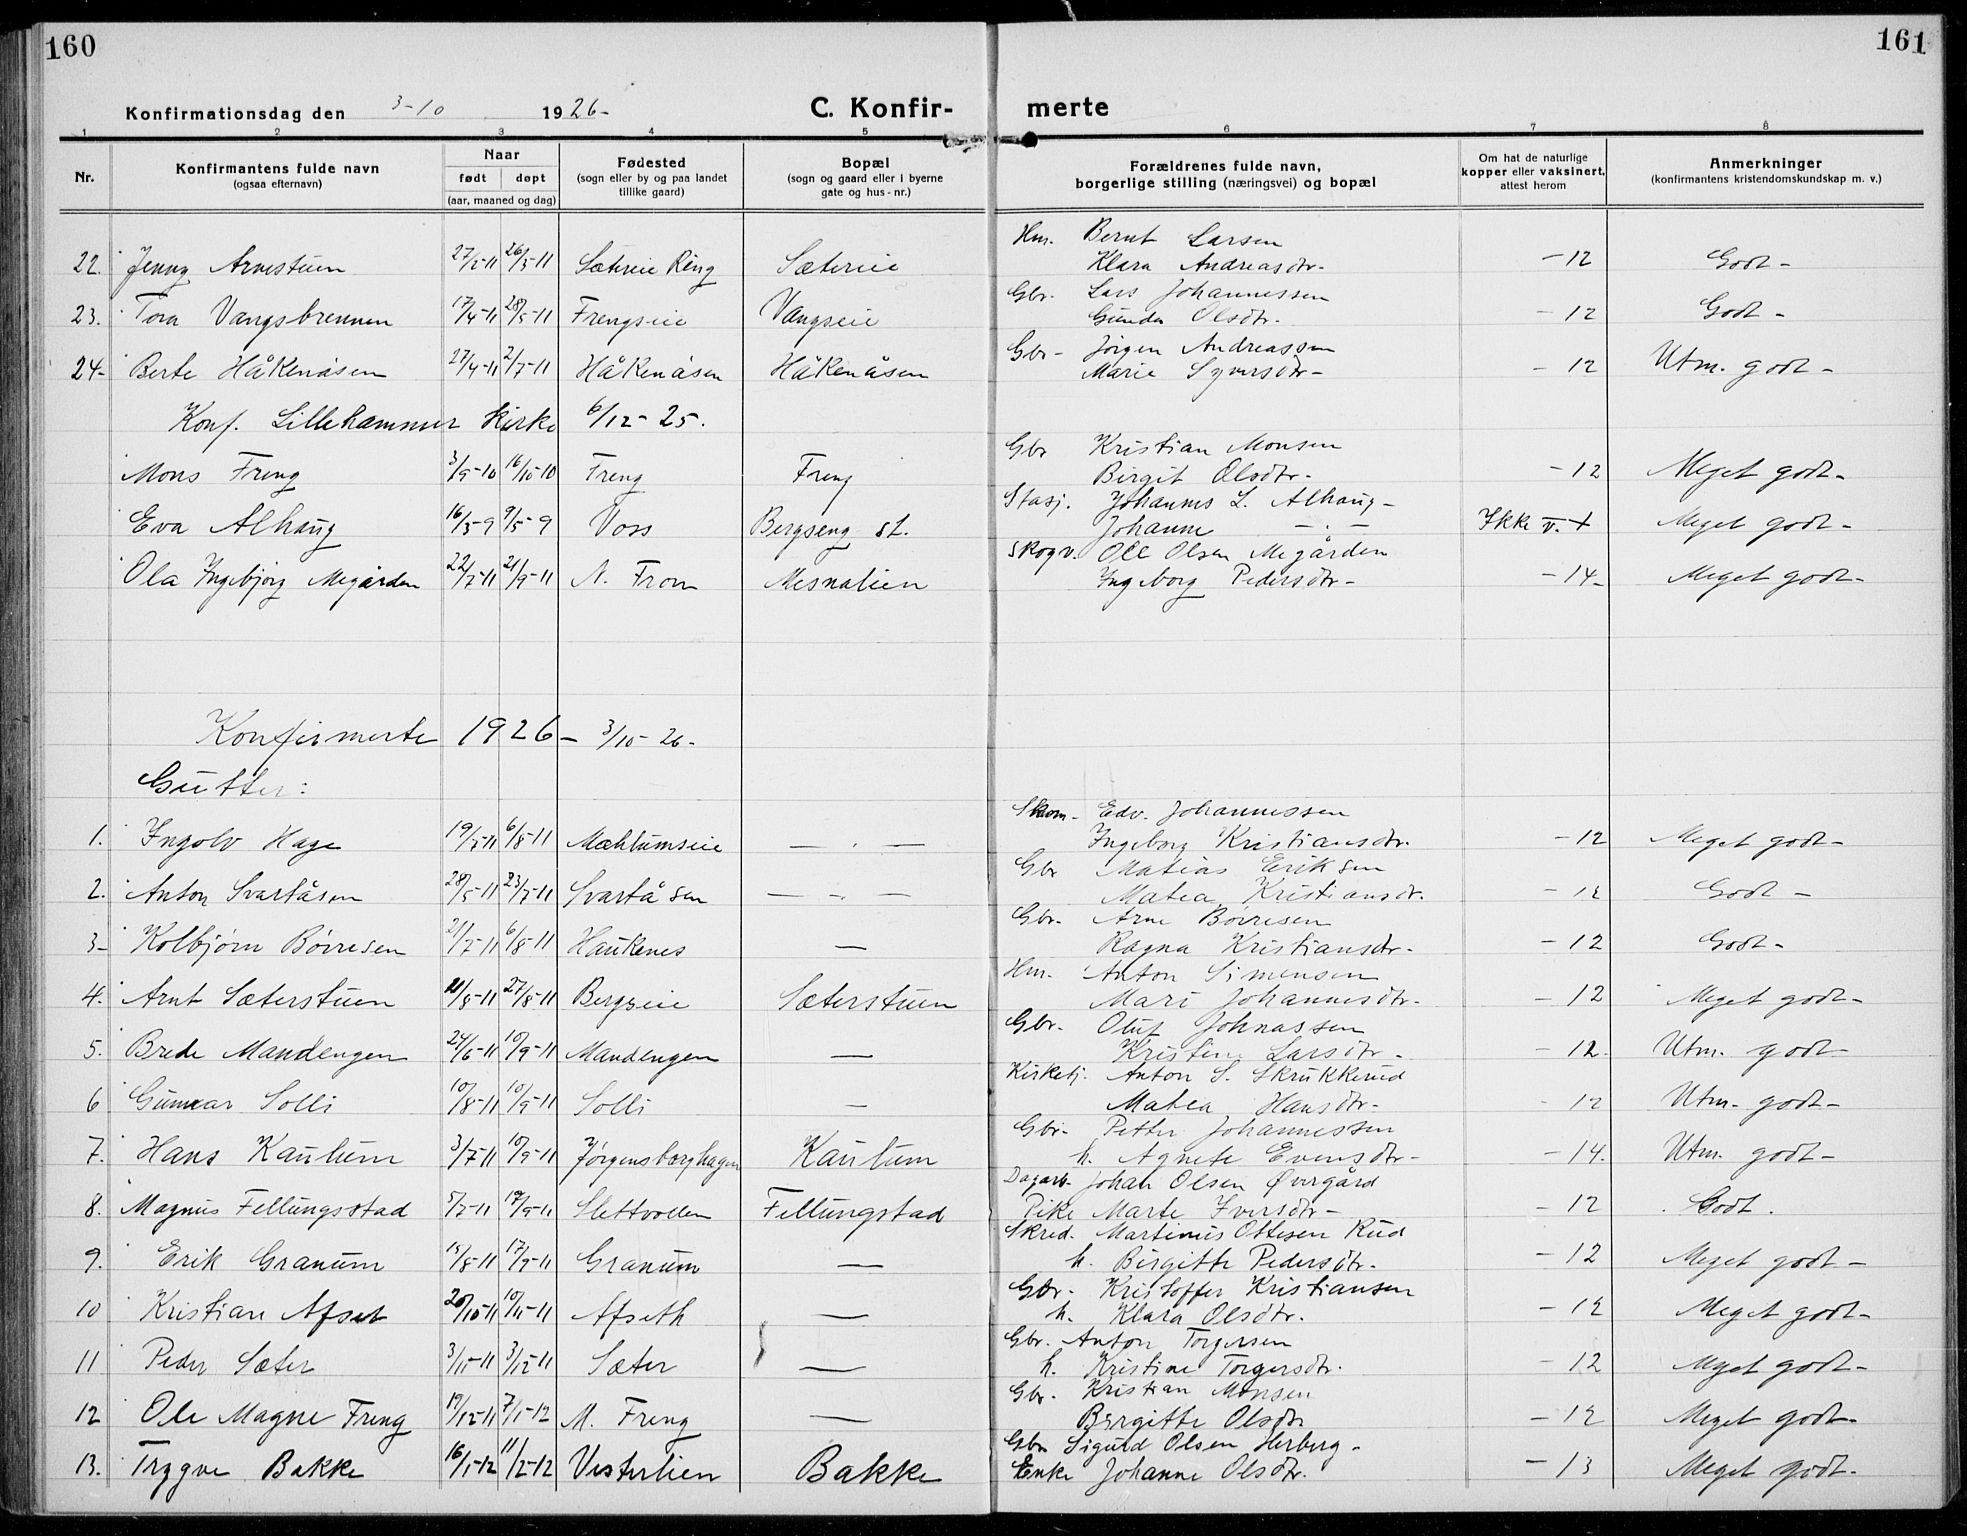 160
161
Konfirmationsdag den 3-10 1926-
C. Konfir-
merte
1 2 3 4 5 6 7 8
Nr.
Konfirmantens fulde navn
(ogsaa efternavn)
Naar
født døpt
(aar, maaned og dag)
Fødested
(sogn eller by og paa landet
tillike gaard)
Bopæl
(sogn og gaard eller i byerne
gate og hus-nr.)
Forældrenes fulde navn,
borgerlige stilling (næringsvei) og bopæl
Om hat de naturlige
kopper eller vaksinert,
attest herom
Anmerkninger
(konfirmantens kristendomskundskap m. v.)
Hm. Bernt Larsen
22. Jenny Arnestuen 27/2-11 26/3-11 Sætereie Ring Sætereie Klara Andreasdtr. -12 Godt-
Gbr. Lars Johannessen
23. Tora Vangsbrennen 17/4-11 28/5-11 Frengseie Vangseie Gunda Olsdtr. -12 Godt-
Gbr- Jørgen Andreassen
24- Berte Håkenåsen 27/4-11 2/7-11 Håkenåsen Håkenåsen Marie Syversdtr- -12 Utm. godt-
Konf. Lillehammer kirke 6/12-25.
Gbr Kristian Monsen
Mons Freng 3/9-10 16/10-10 Freng Freng Birgit Olsdtr- -12 Meget godt-
Stasj. Johannes L. Alhaug-
Eva Alhaug 16/3-9 9/5-9 Voss Bergseng st. Johanne -.- Ikke v. + Meget godt-
Skogv. Ole Olsen Megården
Ola Ingebjørg Megården 22/7-11 21/9-11 N. Fron Mesnalien Ingeborg Pedersdtr- -14- Meget godt-
Konfirmerte 1926- 3/10-26-
Gutter:
Skom- Edv. Johannessen
1. Ingolv Hage 19/7-11 6/8-11 Mæhlumseie -.- Ingeborg Kristiansdtr. -12 Meget godt-
Gbr Matias Eriksen
2. Anton Svartåsen 28/5-11 23/7-11 Svartåsen -.- Matea Kristiansdtr. -12 Godt-
Gbr. Arne Børresen
3- Kolbjørn Børresen 21/7-11 6/8-11 Haukenes - Ragna Kristiansdtr- -12 Godt-
Hm. Anton Simensen
4. Arnt Sæterstuen /8-11 27/8-11 Bergseie Sæterstuen Mari Johannesdtr- -12 Meget godt-
Gbr. Oluf Johnassen
5. Brede Mandengen 24/6-11 10/9-11 Mandengen - Kristine Larsdtr- -12. Utm. godt-
Kirketj. Anton S. Skrukkerud
6 Gunnar Solli 10/8-11 10/9-11 Solli - Matea Hansdtr- -12 Utm. godt-
Gbr- Petter Johannessen
7. Hans Kaulum 3/7-11 10/9-11 Jørgensberghagen Kaulum h. Agnete Evensdtr- -14. Utm. godt-
Dagarb. Johan Olsen Øvergård
8. Magnus Fellungsstad 5/7-11 /9-11 Slettvollen Fellungstad Pike Marte Iversdtr- -12 Godt.
Skred. Martinus Ottesen Rud
9. Erik Granum 15/8-11 17/9-11 Granum - h. Birgitte Pedersdtr. -12 Meget godt-
Gbr- Kristoffer Kristiansen
10 Kristian Afset 20/10-11 10/11-11 Afseth - h. Klara Olsdtr. -12 Meget godt-
Gbr. Anton Torgersen
11 Peder Sæter 3/11-11 3/12-11 Sæter - h. Kristine Torgersdtr. -12 Meget godt-
Gbr. Kristian Monsen
12 Ole Magne Freng 19/12-11 7/1-12 M. Freng - Birgitte Olsdtr -12 Meget godt-
Gbr Sigurd Olsen Herberg-
13. Trygve Bakke 16/1-12 11/2-12 Vesterlien Bakke Enke Johanne Olsdtr. -13 Meget godt-